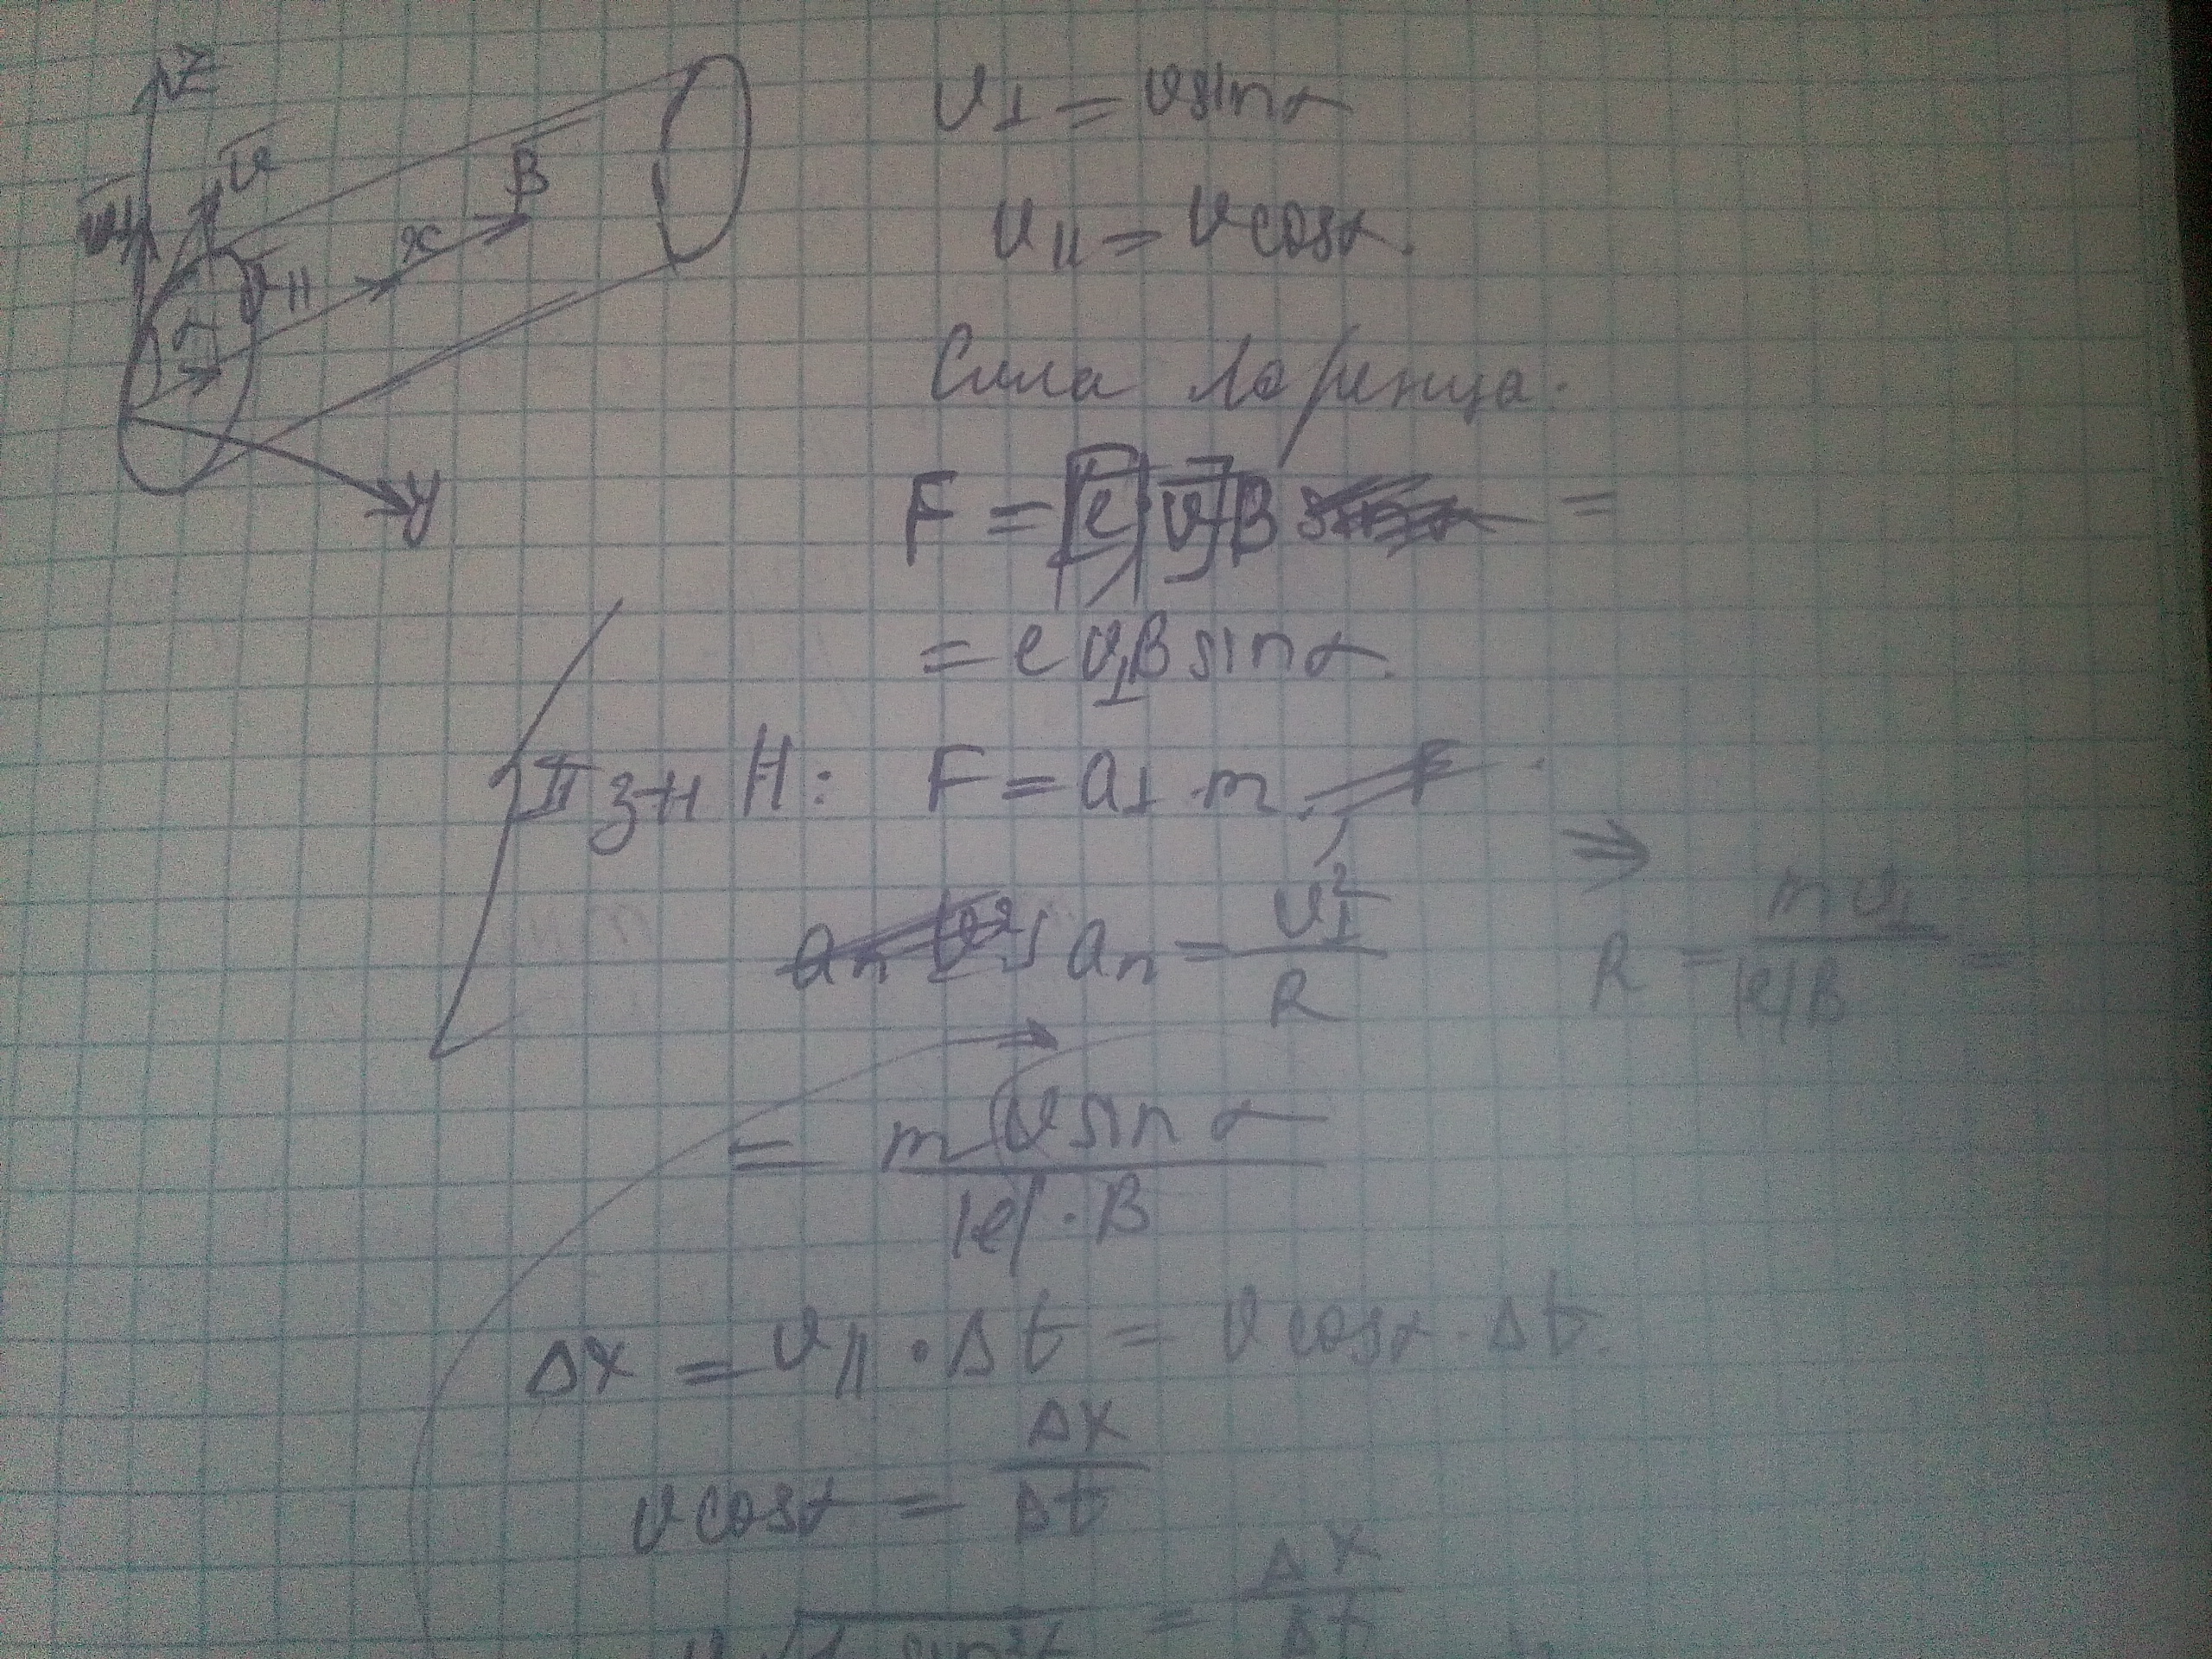 Z
v̅
v̅⊥
B̅
x
v||
α
y
v⊥ = v sinα
v|| = v cosα.
Сила Лоренца:
F = |e| v B =
= e v⊥ B sinα.
II з-н Н: F = a⊥ · m
aₙ = v⊥² / R
⇒ R = m v⊥ / |e|B =
= m v sinα / |e| · B
Δx = v|| · Δt = v cosα · Δt.
v cosα = Δx / Δt
= Δx / Δt